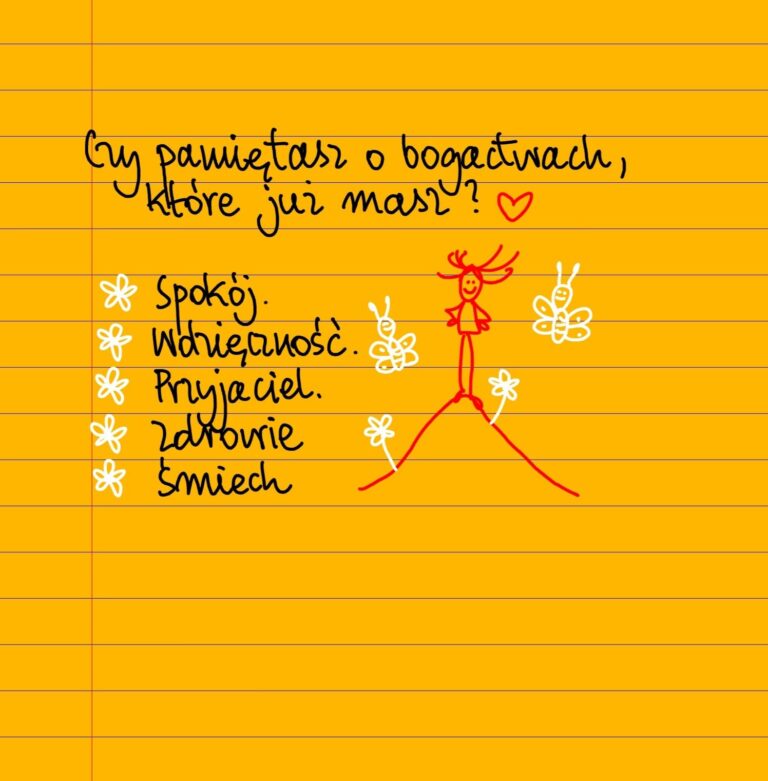 Czy pamiętasz o bogactwach,
które już masz?
Spokój.
Wdzięczność.
Przyjaciel.
Zdrowie
Śmiech